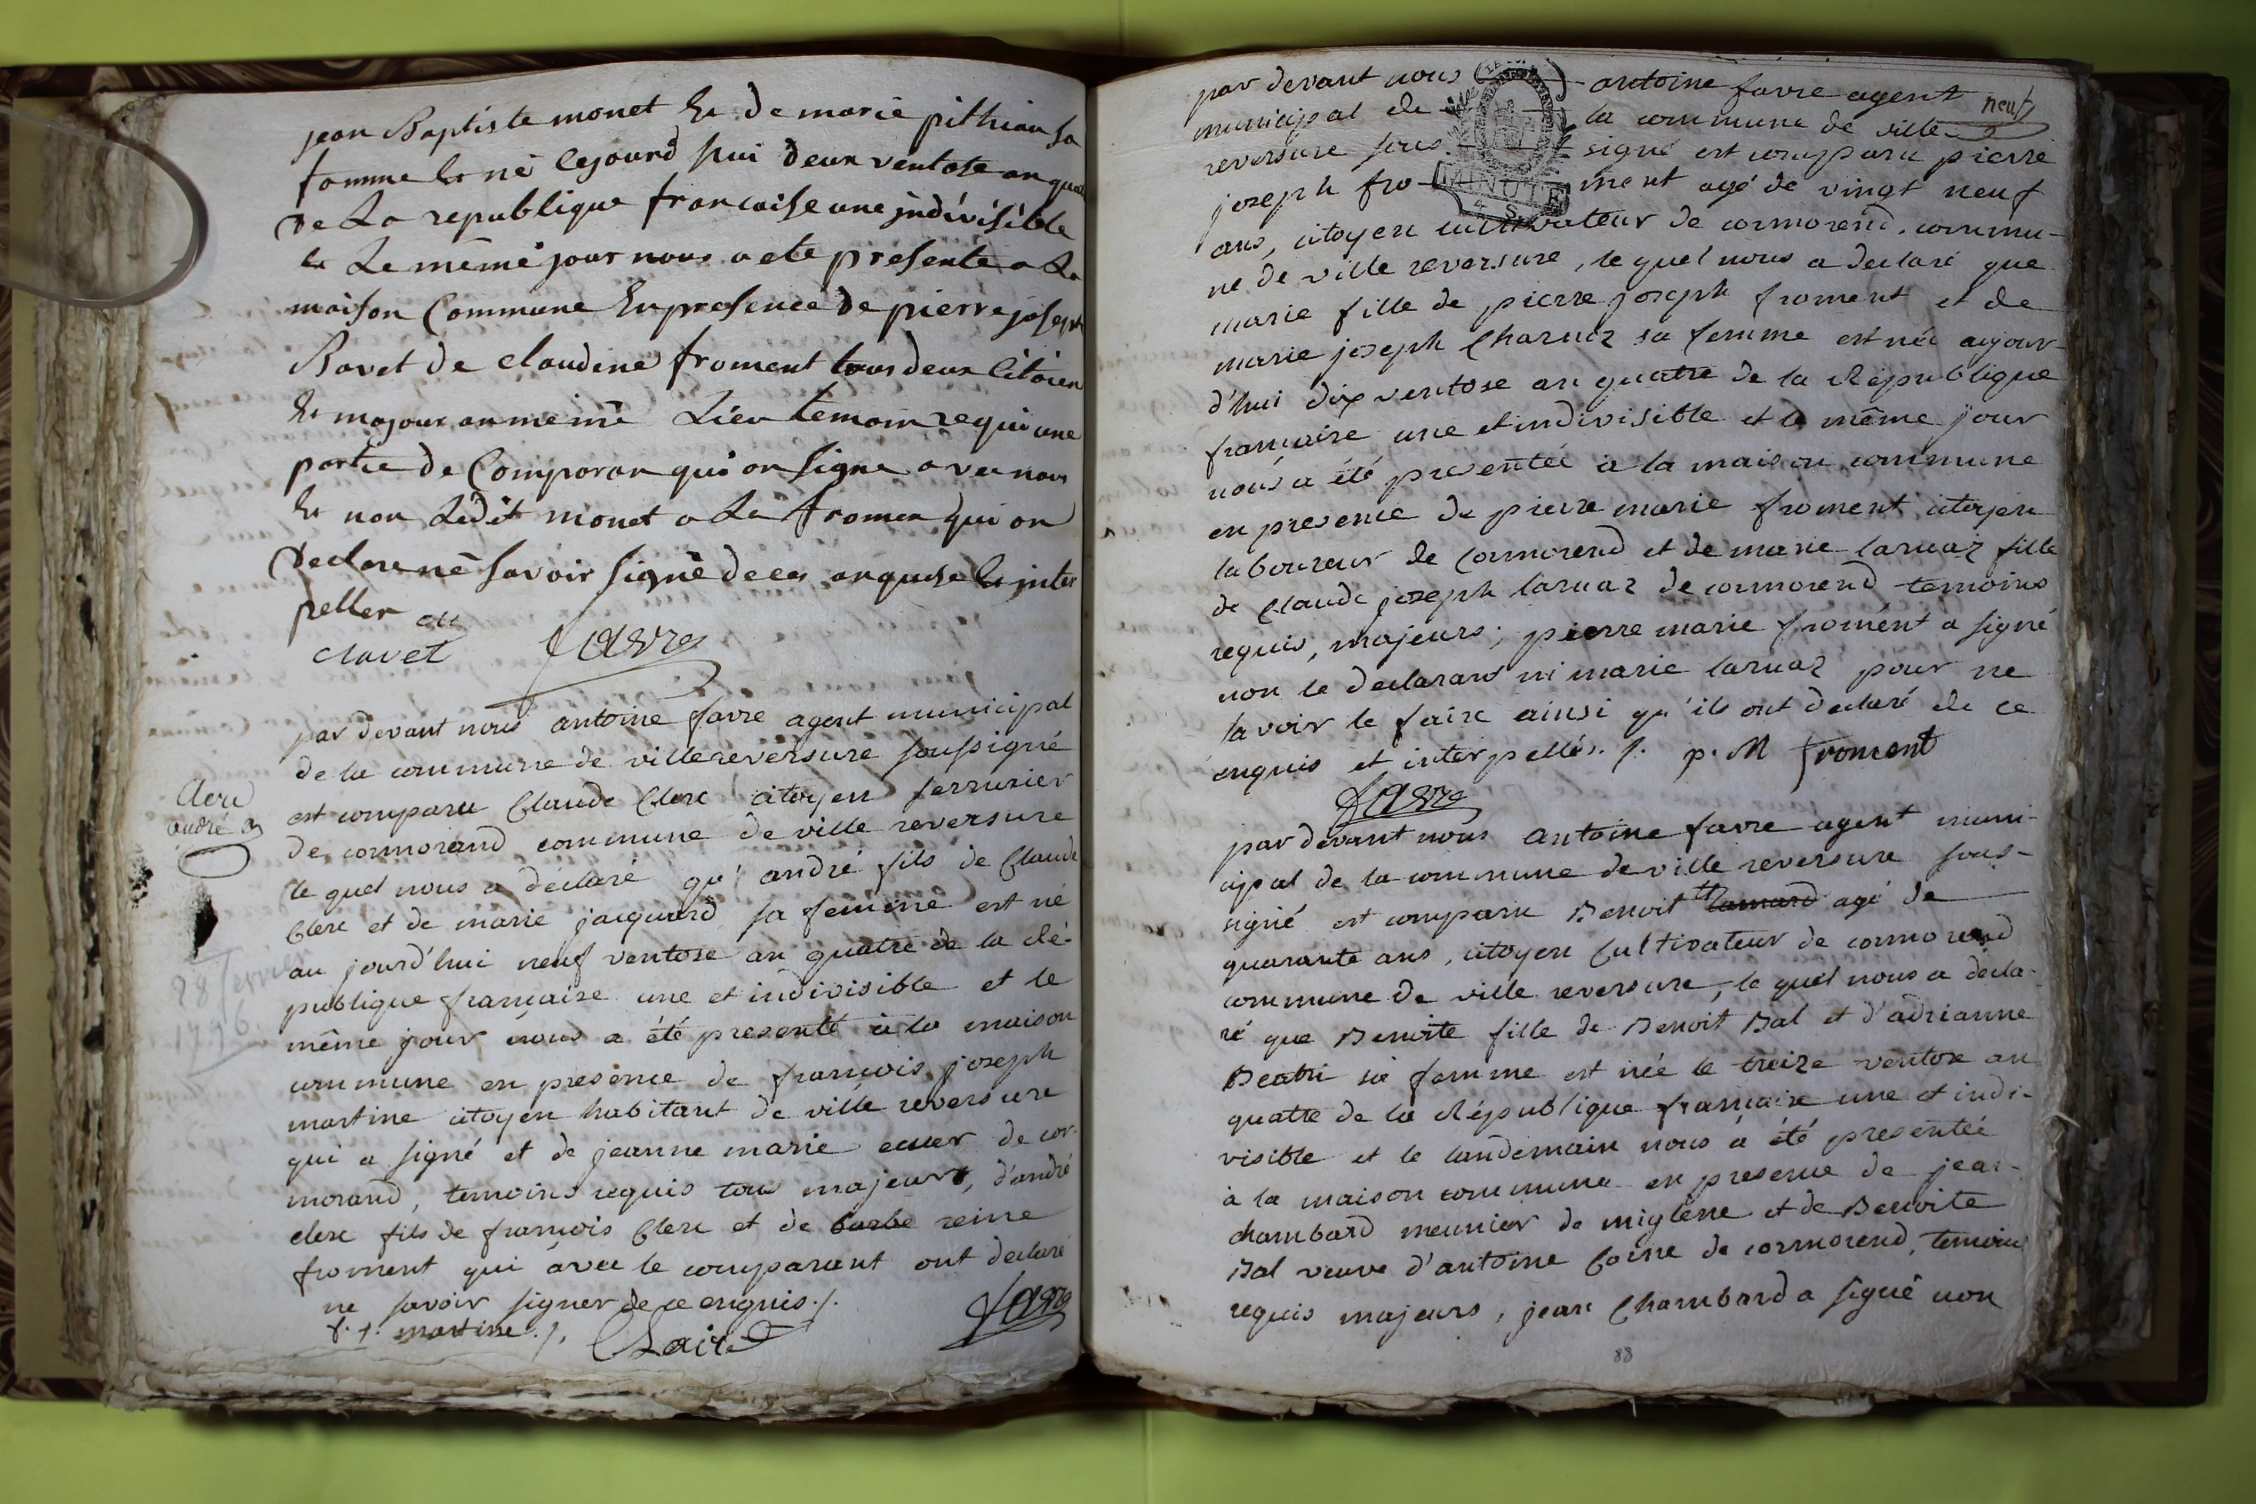 jean Baptiste monet Et de marie pithiou sa
famme Et né Cejourd hui deux ventose an qua
de La republique francaise une indivisible
Et Le même jour nous a ete presente a La
maison Commune En presence de pierre joseph
Bavet de claudine froment tous deux Citoien
Et majour au meme Lieu temoin requi une
partie de Comparan qui on signe avec nous
Et non Ledit monet a La fromen qui on
declare ne savoir signè de ces anquise Et inter
peller
clavet favre
par devant nous antoine favre agent municipal
de la commune de villereversure soussigné
est comparu Claude Clerc citoyen serrurier
de cormorand commune de ville reversure
le quel nous a déclaré qu'andré fils de Claude
Clerc et de marie jacquard sa femme est né
au jourd'hui neuf ventose an quatre de la Ré-
publique française une et indivisible et le
même jour nous a été presenté à la maison
commune en presence de françois joseph
martine citoyen habitant de ville reversure
qui a signé et de jeanne marie ecuer de cor-
morand, temoins requis tous majeurs, d'andré
clerc fils de françois Clerc et de barbe reine
froment qui avec le comparant ont declaré
ne savoir signer de ce enquis ./.
f. j. martine ./. Clair favre
Clerc
andré
28 fevrier
1796.
par devant nous antoine favre agent
neuf
municipal de la commune de ville-
reversure sous signé est comparu pierre
joseph fro ment agé de vingt neuf
MINUTE
4 S
ans, citoyen cultivateur de cormorend. commu-
ne de ville reversure, le quel nous a declaré que
marie fille de pierre joseph froment et de
marie joseph Charnaz sa femme est née aujour-
d'hui dix ventose an quatre de la République
française une et indivisible et le même jour
nous a été presentée à la maison commune
en presence de pierre marie froment citoyen
laboureur de Cormorend et de marie laruaz fille
de Claude joseph laruaz de cormorend temoins
requis, majeurs; pierre marie froment a signé
non le declarant ni marie laruaz pour ne
savoir le faire ainsi qu'ils ont declaré de ce
enquis et interpellés. ./. p. M froment
favre
par devant nous antoine favre agent muni-
cipal de la commune de ville reversure sous-
signé est comparu Benoit agé de
quarante ans, citoyen Cultivateur de cormorend
commune de ville reversure, le quel nous a decla-
ré que Benoite fille de Benoit Bal et d'adrianne
Beatri sa femme est née le treize ventose an
quatre de la République française une et indi-
visible et le landemain nous a été presentée
à la maison commune en presence de jean-
chambard meunier de miglene et de Benoite
Bal veuve d'antoine Coine de cormorend, temoins
requis majeurs, jean Chambard a signé non
88